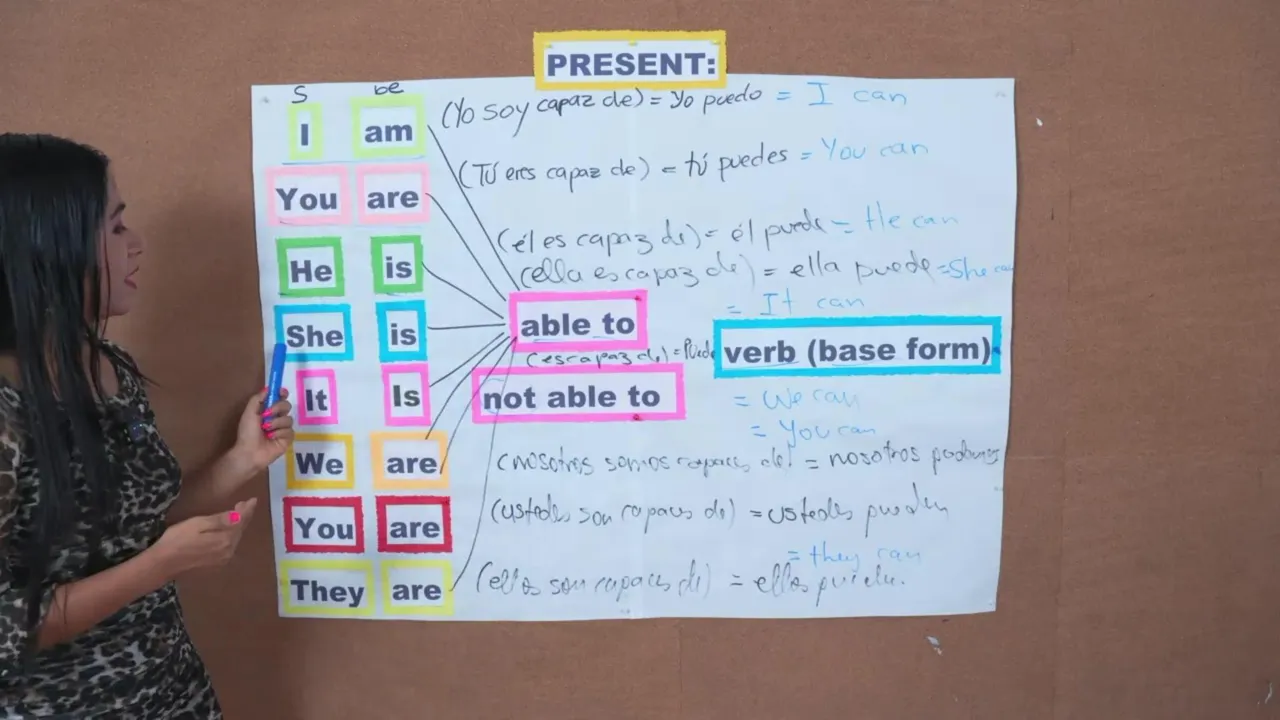 PRESENT:
S be
I am (Yo soy capaz de) = Yo puedo = I can
You are (Tú eres capaz de) = tú puedes = You can
He is (él es capaz de) = él puede = He can
(ella es capaz de) = ella puede = She can
= It can
She is able to verb (base form)
(es capaz de) = Puede
It Is not able to = We can
= You can
We are (nosotros somos capaces de) = nosotros podemos
You are (ustedes son capaces de) = ustedes pueden
= they can
They are (ellos son capaces de) = ellos pueden.